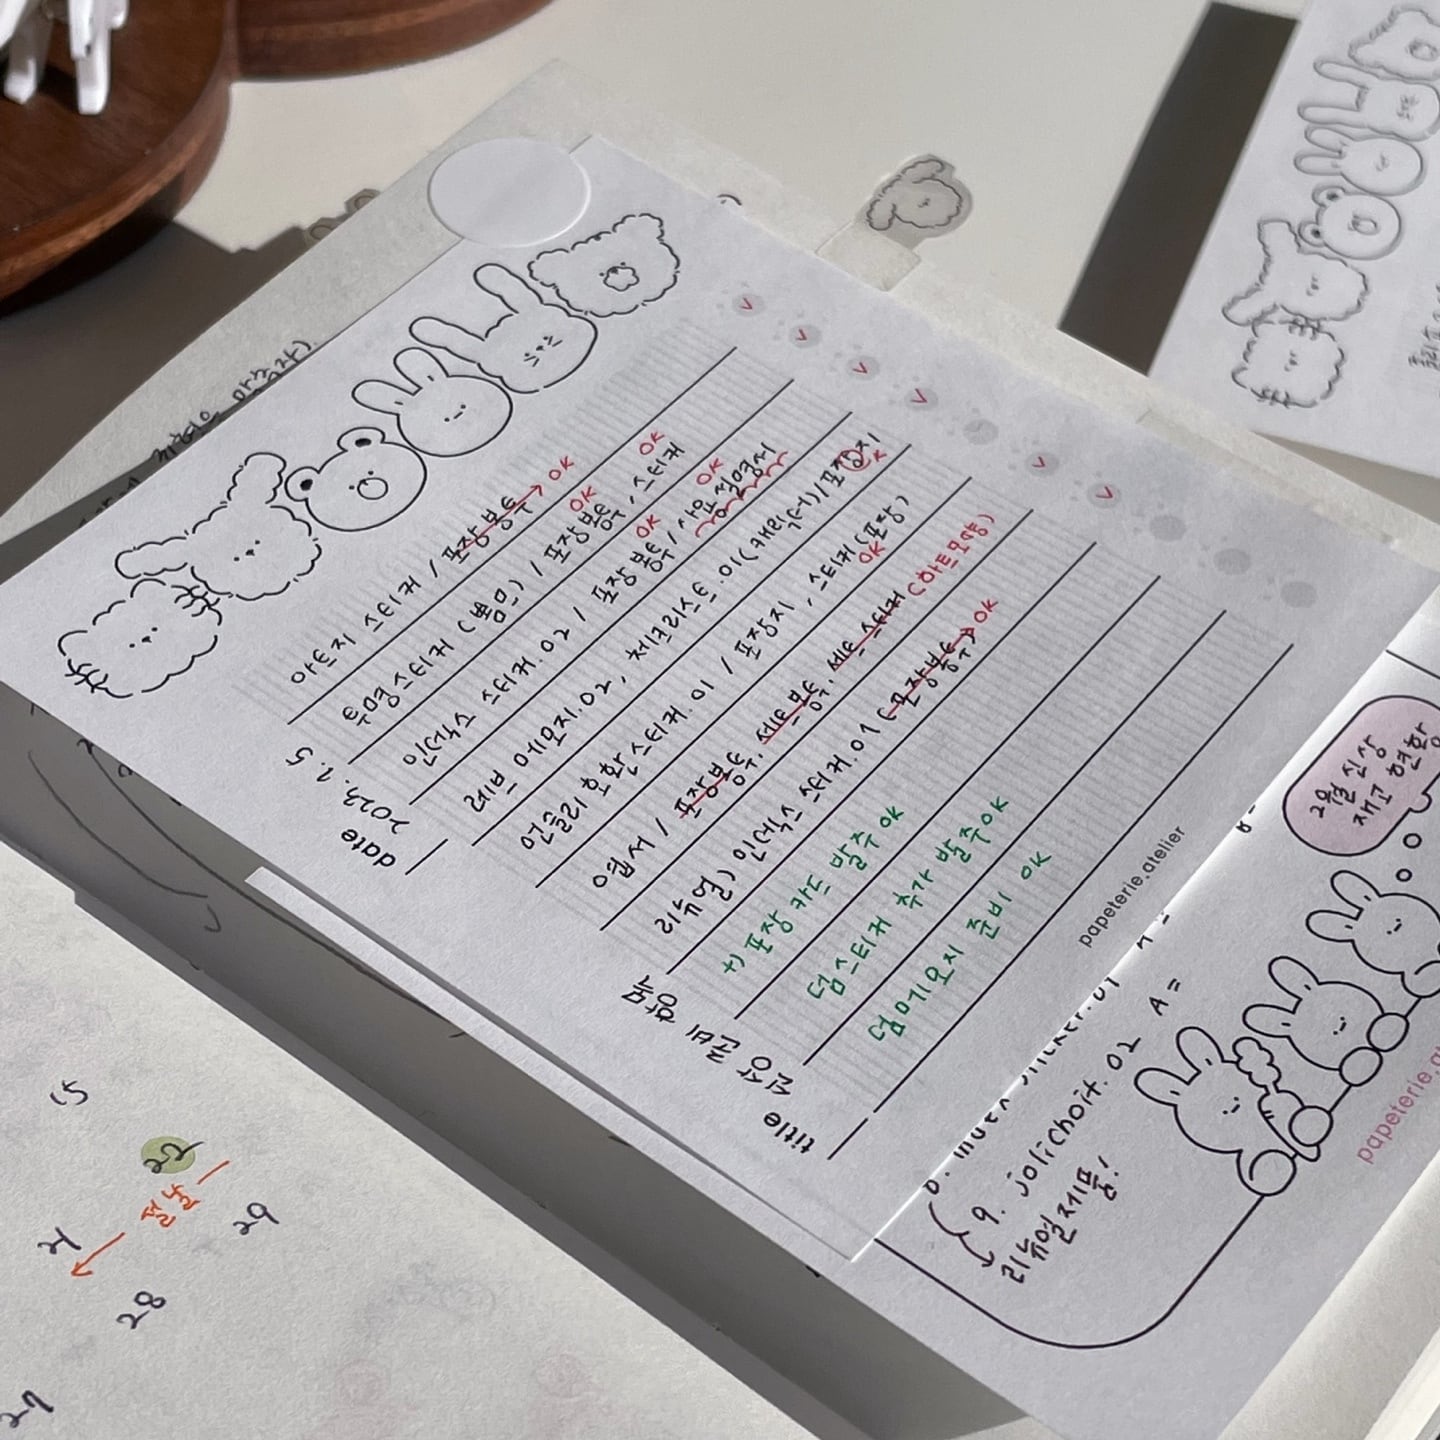 date
2023. 1. 5
title
신상 준비 항목
아트지 스티커 / 포장봉투 → OK
투명스티커 (뽐민) / 포장봉투 OK, 스티커 OK
인덱스 스티커.02 / 포장 봉투 OK, 사용설명서 OK
레브 메모지.02, 체크리스트.01(캐릭터) / 포장지 OK
먼슬리 호환스티커.01 / 포장지, 스티커(포장) OK
엽서 / 포장봉투, 세트 봉투, 세트 스티커 (하트모양)
리뉴얼) 인덱스 스티커.01 (포장봉투) → OK
+) 포장 카드 발주 OK
덤스티커 추가 발주 OK
덤메모지 준비 OK
papeterie.atelier
2월 신상
재고 현황
9. jolichoit. 02 A =
리뉴얼제품!
15
21
22
설날
28
29
27